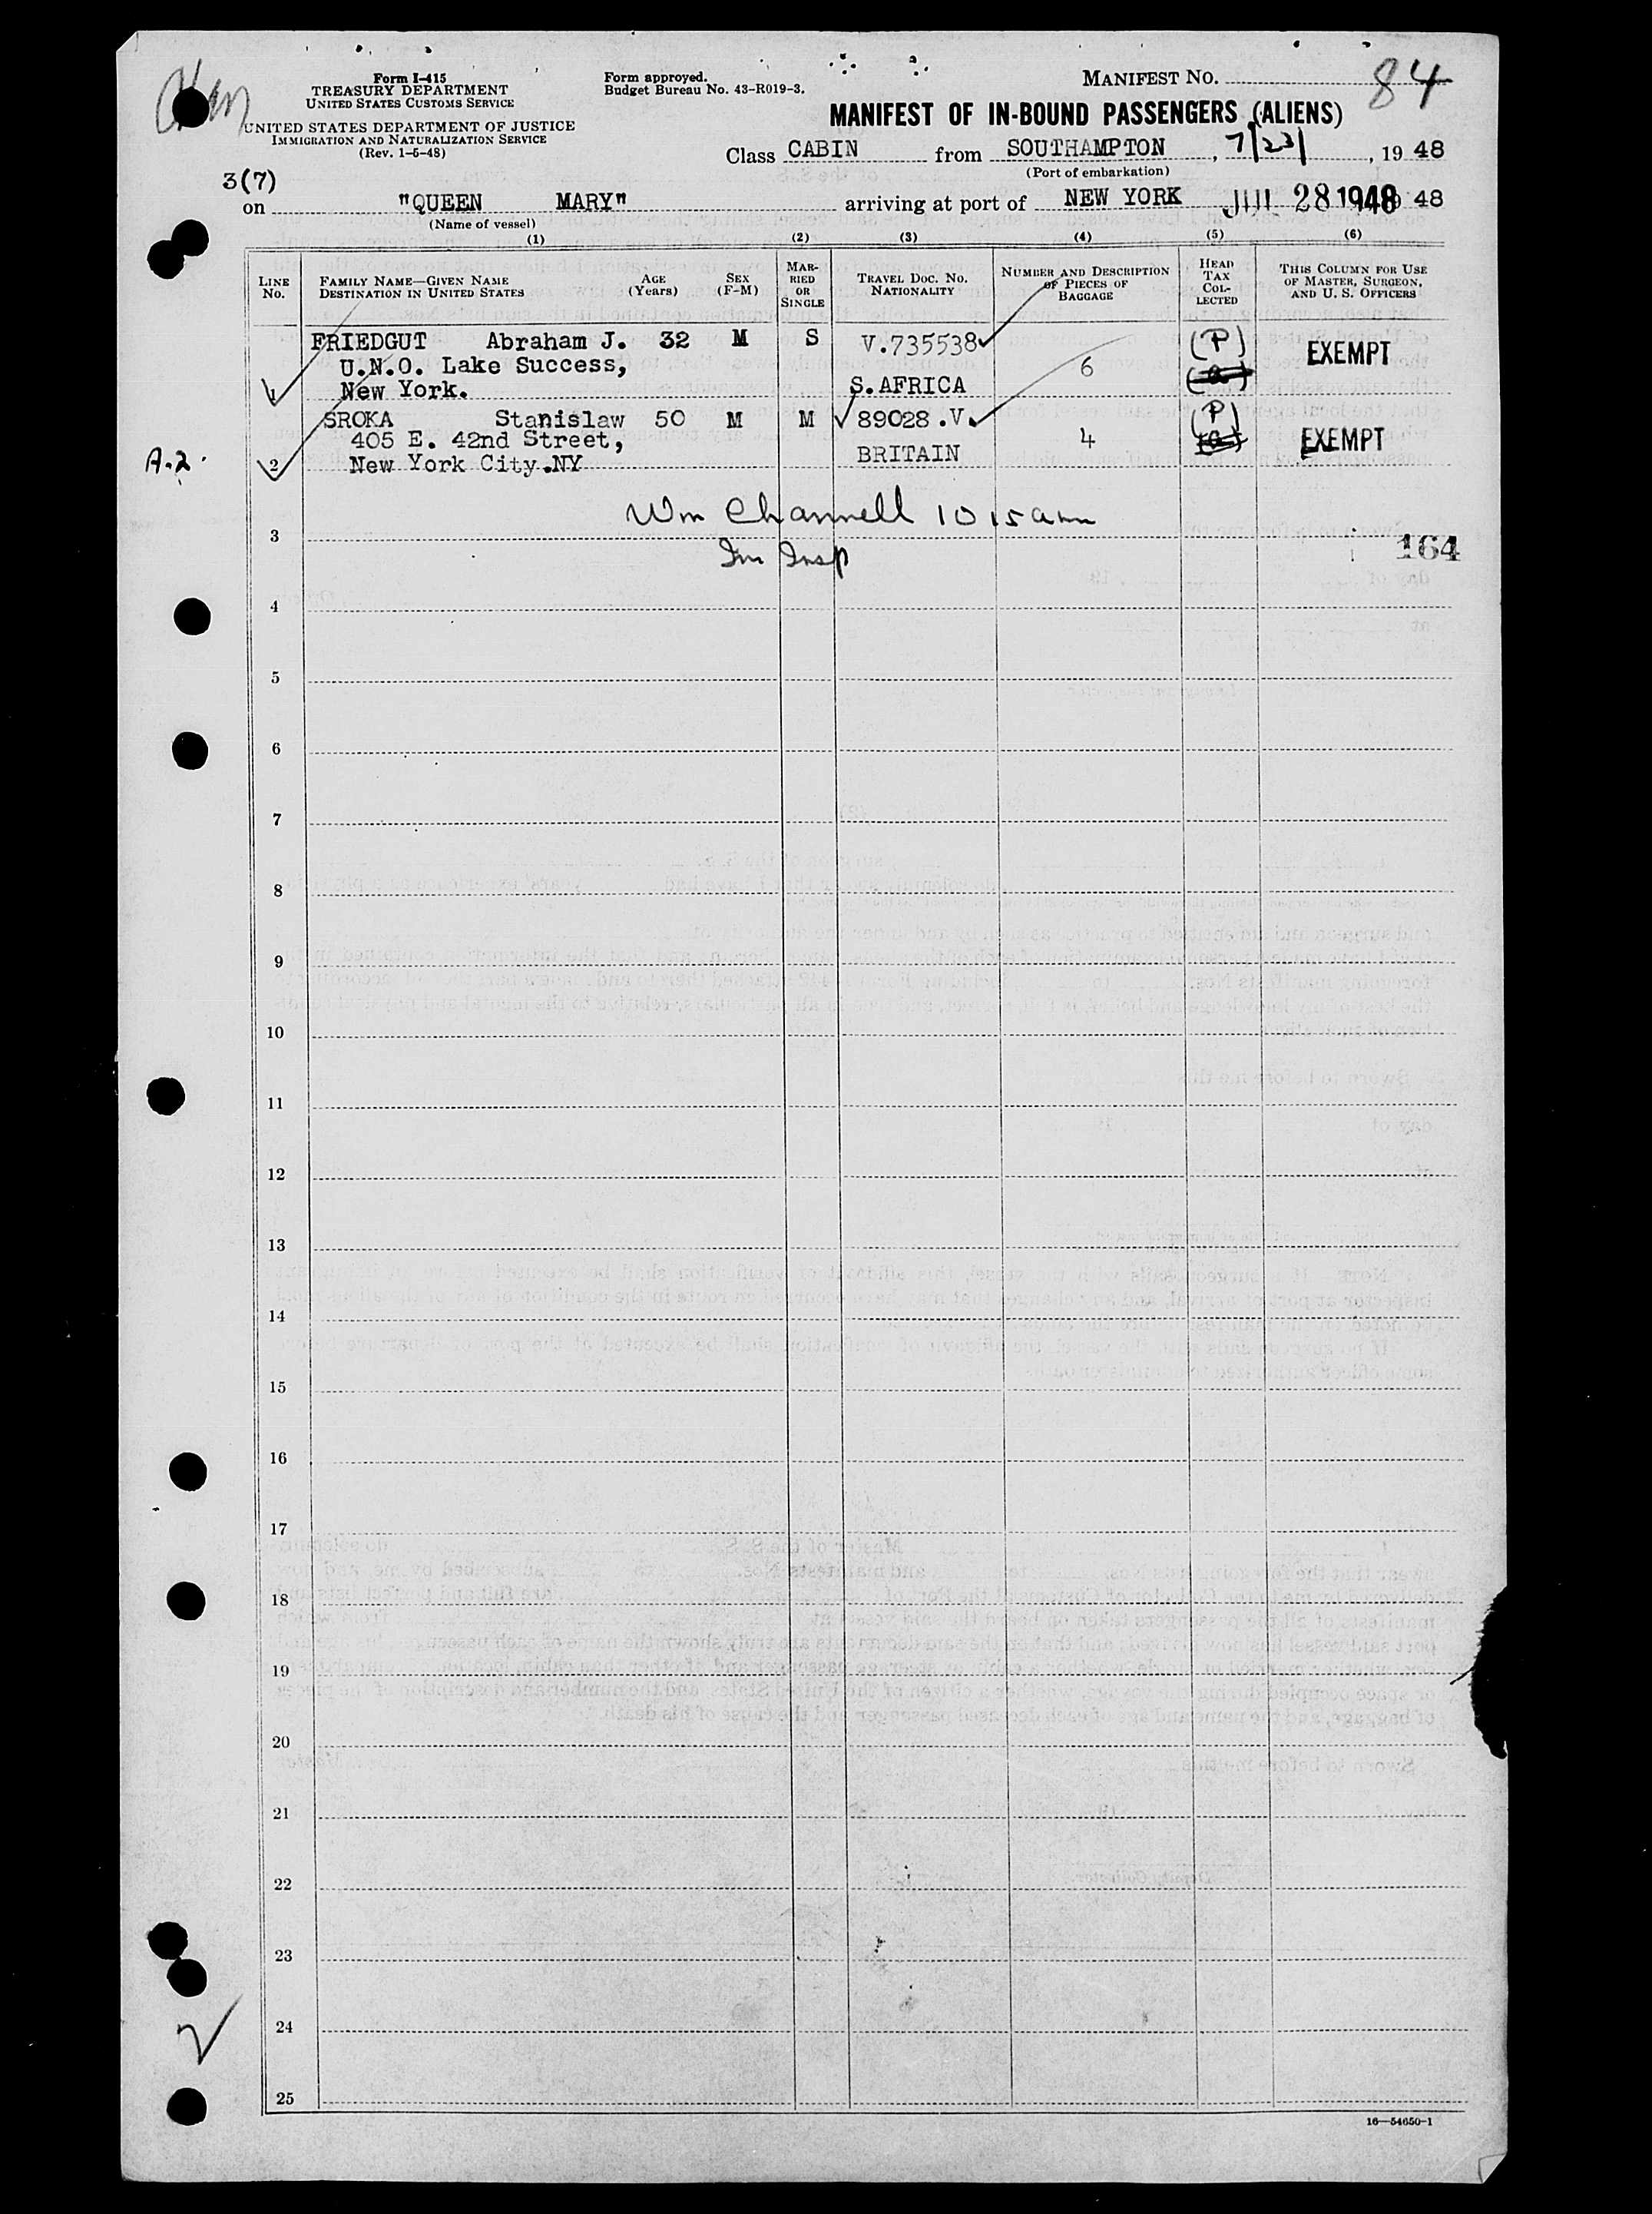 Form I-415
TREASURY DEPARTMENT
UNITED STATES CUSTOMS SERVICE
UNITED STATES DEPARTMENT OF JUSTICE
IMMIGRATION AND NATURALIZATION SERVICE
(Rev. 1-5-48)
Form approved.
Budget Bureau No. 43-R019-3.
MANIFEST NO. 84
MANIFEST OF IN-BOUND PASSENGERS (ALIENS)
Class CABIN from SOUTHAMPTON, 7/23/, 19 48
(Port of embarkation)
3(7)
on "QUEEN MARY" arriving at port of NEW YORK JUL 28 1948 48
(Name of vessel)
(1) (2) (3) (4) (5) (6)
LINE NO. FAMILY NAME—GIVEN NAME DESTINATION IN UNITED STATES AGE (Years) SEX (F-M) MARRIED OR SINGLE TRAVEL DOC. NO. NATIONALITY NUMBER AND DESCRIPTION OF PIECES OF BAGGAGE HEAD TAX COLLECTED THIS COLUMN FOR USE OF MASTER, SURGEON, AND U. S. OFFICERS
FRIEDGUT Abraham J. 32 M S V.735538 (P) EXEMPT
U.N.O. Lake Success, 6
1 New York. S.AFRICA
SROKA Stanislaw 50 M M 89028.V. (P)
405 E. 42nd Street, 4 EXEMPT
A.2. 2 New York City.NY BRITAIN
Wm Channell 10 15 am
3 Im Insp 164
4
5
6
7
8
9
10
11
12
13
14
15
16
17
18
19
20
21
22
23
24
25
16—54650-1